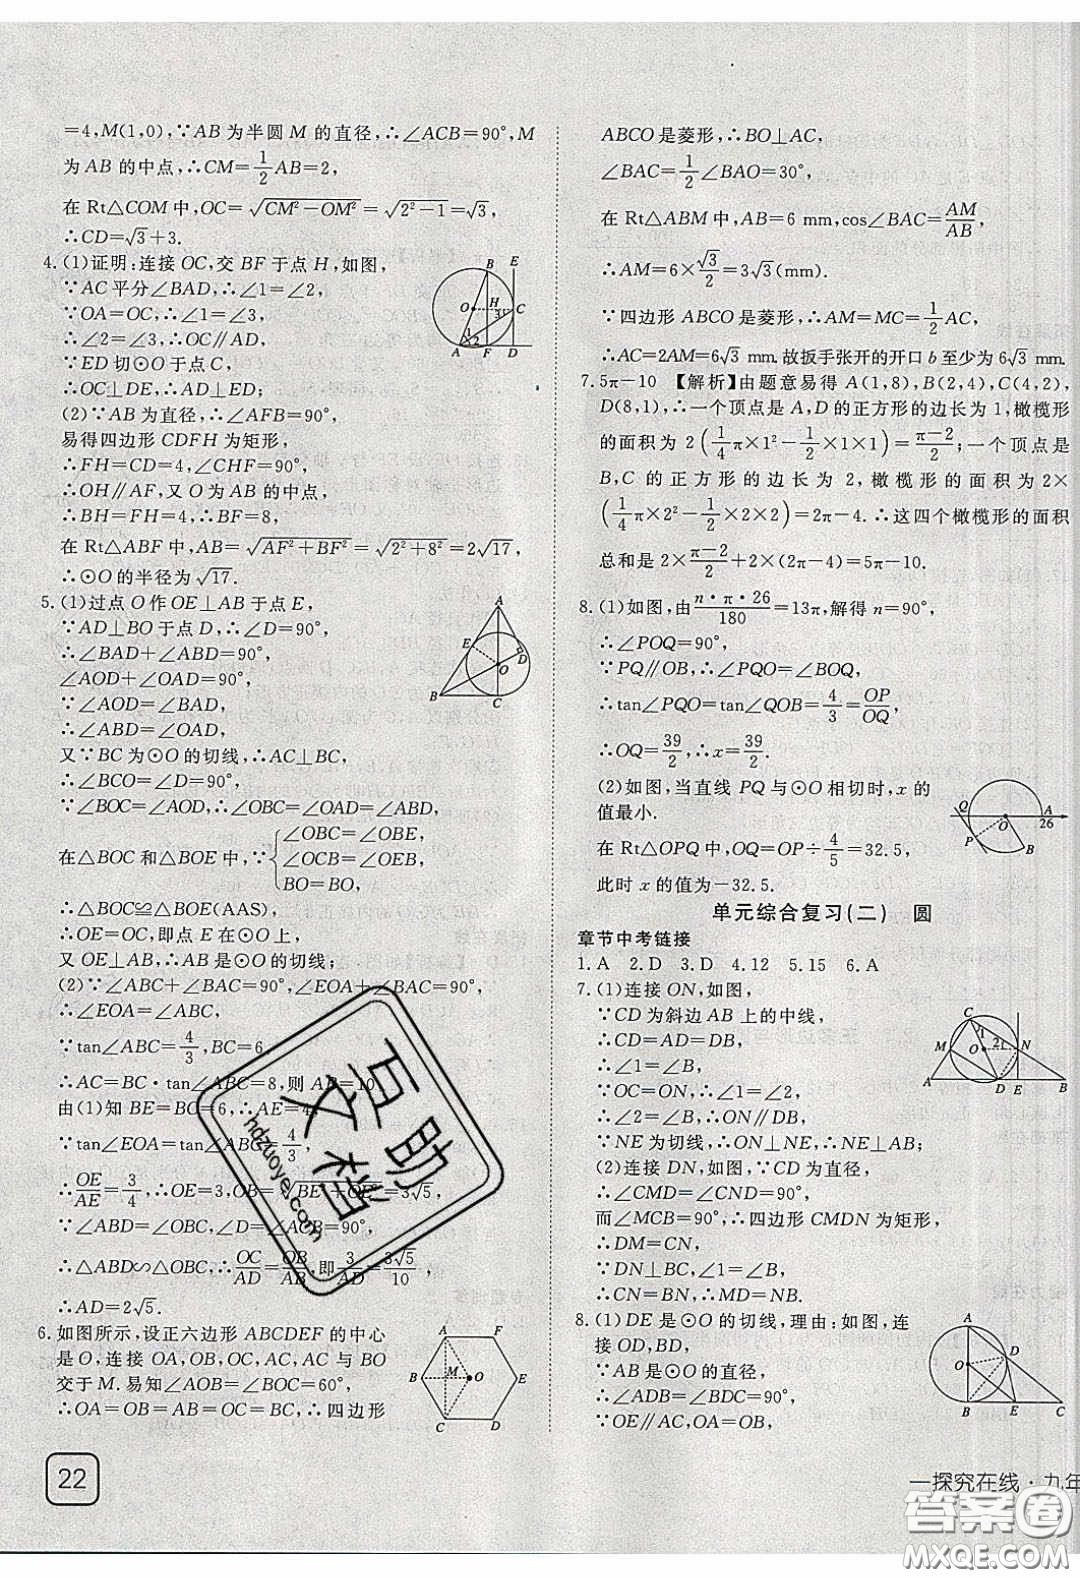 =4,M(1,0),∵AB 为半圆 M 的直径,∴∠ACB=90°,M
为 AB 的中点,∴CM=1/2AB=2,
在 Rt△COM 中,OC=√(CM²-OM²)=√(2²-1)=√3,
∴CD=√3+3.
4.(1)证明:连接 OC,交 BF 于点 H,如图,
∵AC 平分∠BAD,∴∠1=∠2,
∵OA=OC,∴∠1=∠3,
∴∠2=∠3,∴OC∥AD,
∵ED 切⊙O 于点 C,
∴OC⊥DE,∴AD⊥ED;
(2)∵AB 为直径,∴∠AFB=90°,
易得四边形 CDFH 为矩形,
∴FH=CD=4,∠CHF=90°,
∴OH∥AF,又 O 为 AB 的中点,
∴BH=FH=4,∴BF=8,
在 Rt△ABF 中,AB=√(AF²+BF²)=√(2²+8²)=2√17,
∴⊙O 的半径为√17.
5.(1)过点 O 作 OE⊥AB 于点 E,
∵AD⊥BO 于点 D,∴∠D=90°,
∴∠BAD+∠ABD=90°,
∠AOD+∠OAD=90°,
∵∠AOD=∠BAD,
∴∠ABD=∠OAD,
又∵BC 为⊙O 的切线,∴AC⊥BC,
∴∠BCO=∠D=90°,
∵∠BOC=∠AOD,∴∠OBC=∠OAD=∠ABD,
在△BOC 和△BOE 中,∵{∠OBC=∠OBE,
∠OCB=∠OEB,
BO=BO,
∴△BOC≌△BOE(AAS),
∴OE=OC,即点 E 在⊙O 上,
又 OE⊥AB,∴AB 是⊙O 的切线;
(2)∵∠ABC+∠BAC=90°,∠EOA+∠BAC=90°,
∴∠EOA=∠ABC,
∵tan∠ABC=4/3,BC=6,
∴AC=BC·tan∠ABC=8,则 AB=10,
由(1)知 BE=BC=6,∴AE=4,
∵tan∠EOA=tan∠ABC=4/3,
∴OE/AE=3/4,∴OE=3,OB=√(BE²+OE²)=3√5,
∵∠ABD=∠OBC,∠D=∠ACB=90°,
∴△ABD∽△OBC,∴OC/AD=OB/AB,即3/AD=3√5/10,
∴AD=2√5.
6.如图所示,设正六边形 ABCDEF 的中心
是 O,连接 OA,OB,OC,AC 与 BO
交于 M.易知∠AOB=∠BOC=60°,
∴OA=OB=AB=OC=BC,∴四边形
B
O H
3 C
1 2
A F D
A
E D
O
B C
A F
B M O E
C D
22
ABCO 是菱形,∴BO⊥AC,
∠BAC=1/2∠BAO=30°,
在 Rt△ABM 中,AB=6 mm,cos∠BAC=AM/AB,
∴AM=6×√3/2=3√3(mm).
∵四边形 ABCO 是菱形,∴AM=MC=1/2AC,
∴AC=2AM=6√3 mm.故扳手张开的开口 b 至少为 6√3 mm.
7.5π-10 【解析】由题意易得 A(1,8),B(2,4),C(4,2),
D(8,1),∴一个顶点是 A,D 的正方形的边长为 1,橄榄形
的面积为 2(1/4π×1²-1/2×1×1)=(π-2)/2;一个顶点是
B,C 的正方形的边长为 2,橄榄形的面积为 2×
(1/4π×2²-1/2×2×2)=2π-4.∴这四个橄榄形的面积
总和是 2×(π-2)/2+2×(2π-4)=5π-10.
8.(1)如图,由 n·π·26/180=13π,解得 n=90°,
∴∠POQ=90°,
∵PQ∥OB,∴∠PQO=∠BOQ,
∴tan∠PQO=tan∠QOB=4/3=OP/OQ,
∴OQ=39/2,∴x=39/2;
(2)如图,当直线 PQ 与⊙O 相切时,x 的
值最小.
在 Rt△OPQ 中,OQ=OP÷4/5=32.5,
此时 x 的值为-32.5.
Q O A
26
P B
单元综合复习(二) 圆
章节中考链接
1.A 2.D 3.D 4.12 5.15 6.A
7.(1)连接 ON,如图,
∵CD 为斜边 AB 上的中线,
∴CD=AD=DB,
∴∠1=∠B,
∵OC=ON,∴∠1=∠2,
∴∠2=∠B,∴ON∥DB,
∵NE 为切线,∴ON⊥NE,∴NE⊥AB;
(2)连接 DN,如图,∵CD 为直径,
∴∠CMD=∠CND=90°,
而∠MCB=90°,∴四边形 CMDN 为矩形,
∴DM=CN,
∵DN⊥BC,∠1=∠B,
∴CN=BN,∴MD=NB.
8.(1)DE 是⊙O 的切线,理由:如图,连
接 OD,BD,
∵AB 是⊙O 的直径,
∴∠ADB=∠BDC=90°,
∵OE∥AC,OA=OB,
C
1
M O 2 N
A D E B
A
O D
B E C
一探究在线·九年
百助文档
hdzuoye.com
答案圈
MXQE.COM